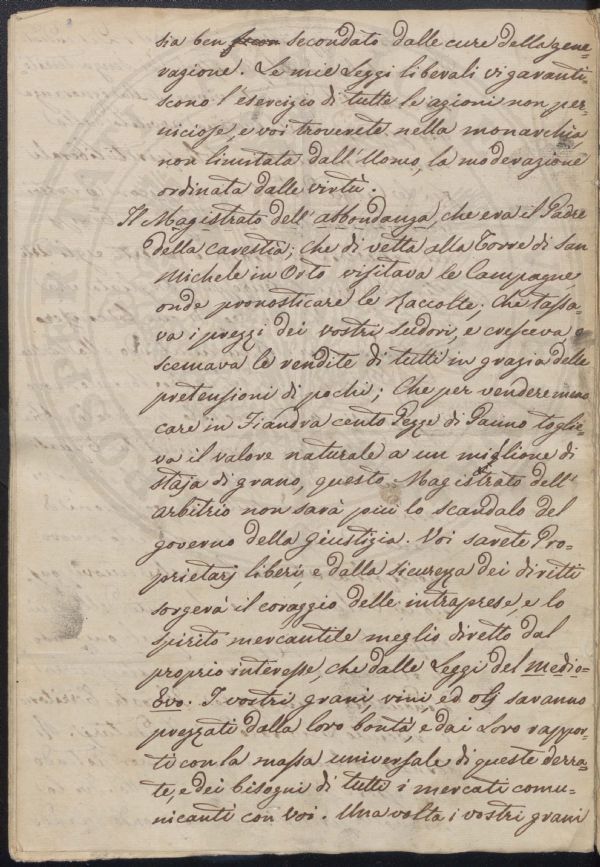 sia ben secondato dalle cure della gene-
razione. Le mie Leggi liberali vi garanti-
scono l'esercizio di tutte le azioni non per-
niciose, e voi troverete nella monarchia
non limitata dall'Uomo, la moderazione
ordinata dalle virtù.
Il Magistrato dell'abbondanza, che era il Padre
della carestia; che di vetta alla Torre di San
Michele in Orto visitava le Campagne,
onde pronosticare le Raccolte; che tassa-
va i prezzi dei vostri sudori, e cresceva, o
scemava le rendite di tutti in grazia delle
pretensioni di pochi; Che per vendere meno
care in Fiandra cento Pezze di Panno toglie-
va il valore naturale a un miglione di
staja di grano, questo Magistrato dell'
arbitrio non sarà più lo scandalo del
governo della giustizia. Voi sarete Pro-
prietarj liberi, e dalla sicurezza dei diritti
sorgerà il coraggio delle intraprese, e lo
spirito mercantile meglio diretto dal
proprio interesse, che dalle Leggi del medio-
Evo. I vostri grani vini, ed olj saranno
prezzati dalla loro bontà, e dai Loro rappor-
ti con la massa universale di queste derra-
te, e dei bisogni di tutti i mercati comu-
nicanti con voi. Una volta i vostri grani